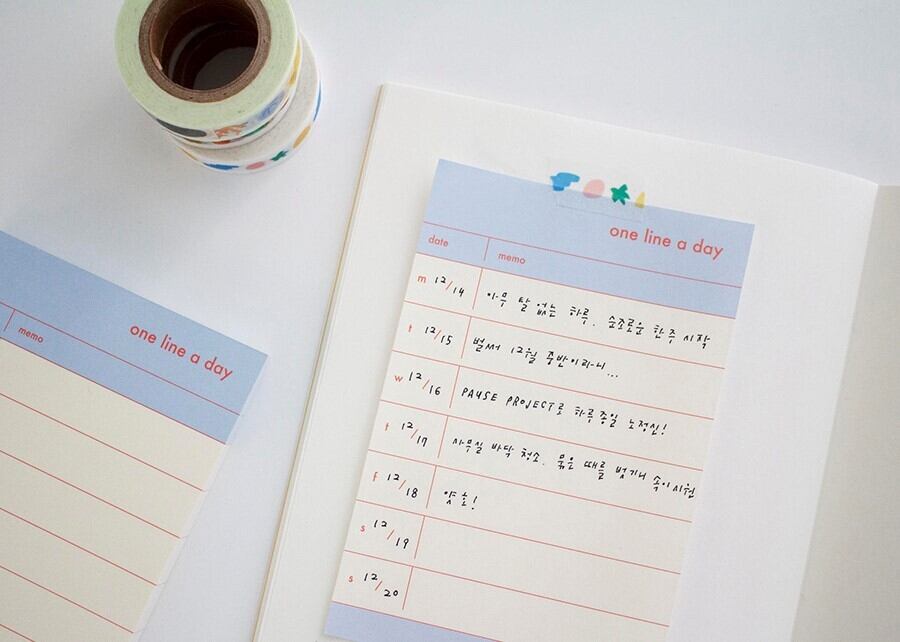 one line a day
date memo
m 12/14 아무 탈 없는 하루. 순조로운 한 주 시작
t 12/15 벌써 12월 중반이라니...
w 12/16 PAUSE PROJECT로 하루종일 노정신!
t 12/17 사무실 바닥 청소. 묵은 때를 벗기니 속이 시원
f 12/18 얏호!
s 12/19
s 12/20
one line a day
memo